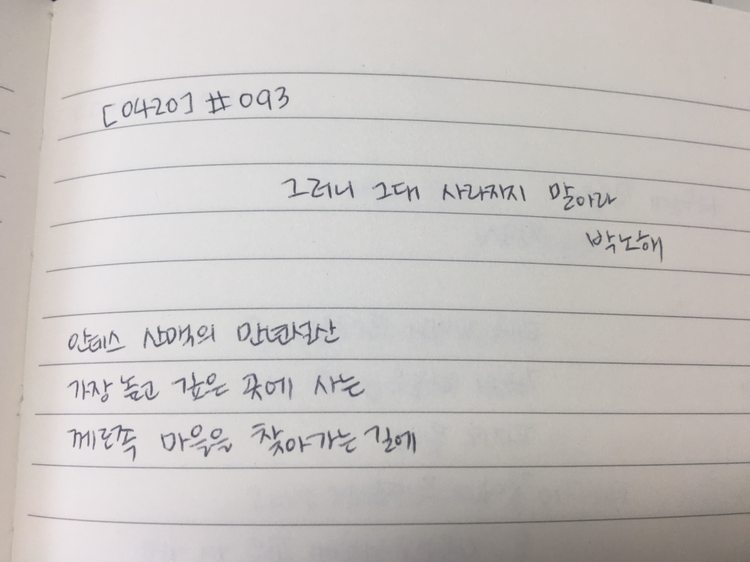 [0420] #093
그러니 그대 사라지지 말아라
박노해
안데스 산맥의 만년설산
가장 높고 깊은 곳에 사는
께로족 마을을 찾아가는 길에